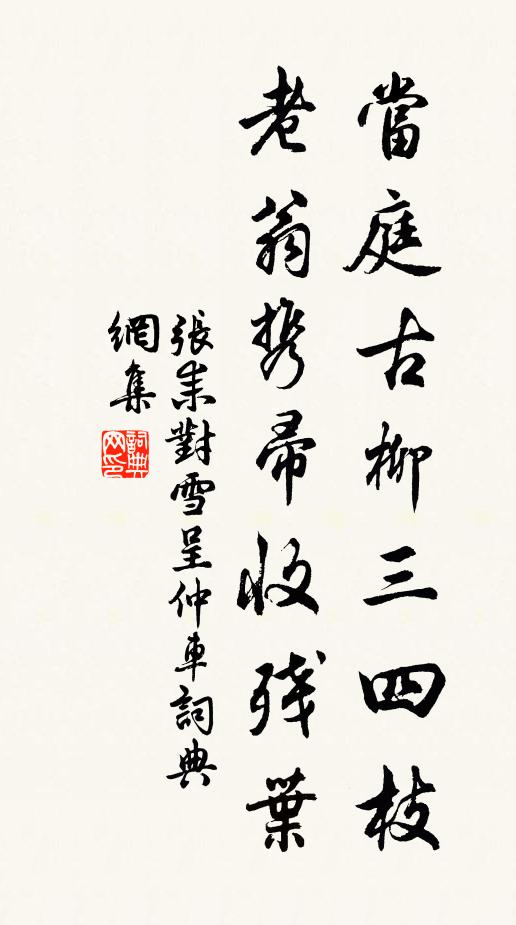 當庭古柳三四枝
老翁携帚收殘葉
張耒對雪呈仲車詞典
網集
詞典
网印